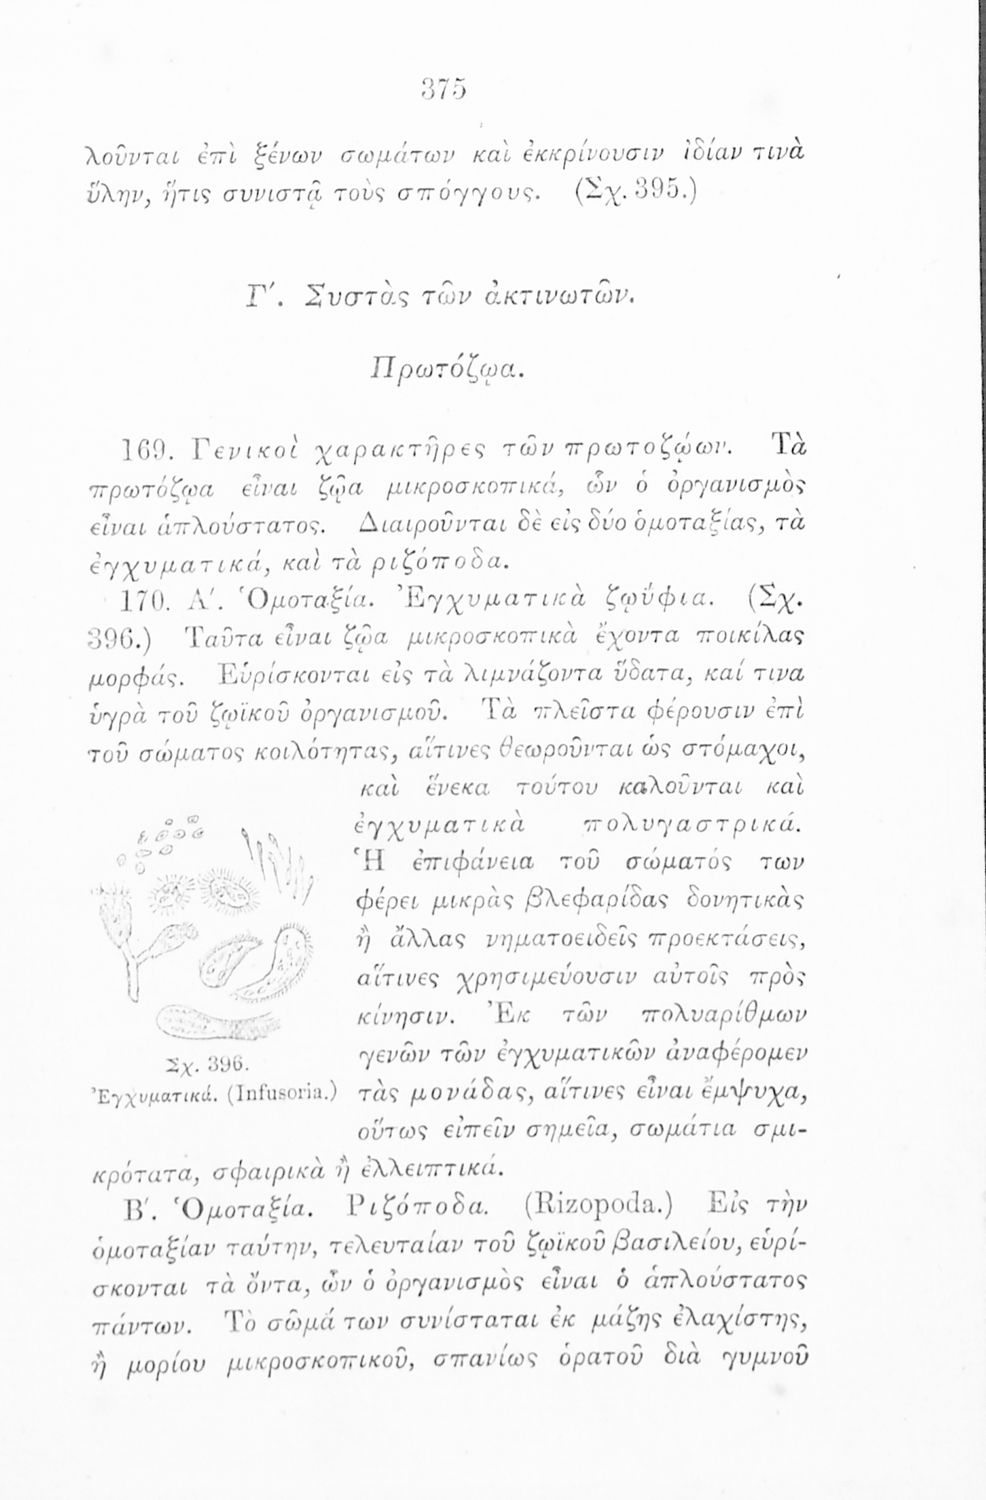 375
λοῦνται ἐπὶ ξένων σωμάτων καὶ ἐκκρίνουσιν ἰδίαν τινὰ
ὕλην, ἥτις συνιστᾷ τοὺς σπόγγους. (Σχ. 395.)
Γʹ. Συστὰς τῶν ἀκτινωτῶν.
Πρωτόζῳα.
169. Γενικοὶ χαρακτῆρες τῶν πρωτοζῴων. Τὰ
πρωτόζῳα εἶναι ζῷα μικροσκοπικά, ὧν ὁ ὀργανισμὸς
εἶναι ἁπλούστατος. Διαιροῦνται δὲ εἰς δύο ὁμοταξίας, τὰ
ἐγχυματικά, καὶ τὰ ριζόποδα.
170. Αʹ. Ὁμοταξία. Ἐγχυματικὰ ζῳΰφια. (Σχ.
396.) Ταῦτα εἶναι ζῷα μικροσκοπικὰ ἔχοντα ποικίλας
μορφάς. Εὑρίσκονται εἰς τὰ λιμνάζοντα ὕδατα, καί τινα
ὑγρὰ τοῦ ζῳϊκοῦ ὀργανισμοῦ. Τὰ πλεῖστα φέρουσιν ἐπὶ
τοῦ σώματος κοιλότητας, αἵτινες θεωροῦνται ὡς στόμαχοι,
καὶ ἕνεκα τούτου καλοῦνται καὶ
ἐγχυματικὰ πολυγαστρικά.
Ἡ ἐπιφάνεια τοῦ σώματός των
φέρει μικρὰς βλεφαρίδας δονητικὰς
ἢ ἄλλας νηματοειδεῖς προεκτάσεις,
αἵτινες χρησιμεύουσιν αὐτοῖς πρὸς
κίνησιν. Ἐκ τῶν πολυαρίθμων
γενῶν τῶν ἐγχυματικῶν ἀναφέρομεν
τὰς μονάδας, αἵτινες εἶναι ἔμψυχα,
οὕτως εἰπεῖν σημεῖα, σωμάτια σμι-
Σχ. 396.
Ἐγχυματικά. (Infusoria.)
κρότατα, σφαιρικὰ ἢ ἐλλειπτικά.
Βʹ. Ὁμοταξία. Ριζόποδα. (Rizopoda.) Εἰς τὴν
ὁμοταξίαν ταύτην, τελευταίαν τοῦ ζῳϊκοῦ βασιλείου, εὑρί-
σκονται τὰ ὄντα, ὧν ὁ ὀργανισμὸς εἶναι ὁ ἁπλούστατος
πάντων. Τὸ σῶμά των συνίσταται ἐκ μάζης ἐλαχίστης,
ἢ μορίου μικροσκοπικοῦ, σπανίως ὁρατοῦ διὰ γυμνοῦ